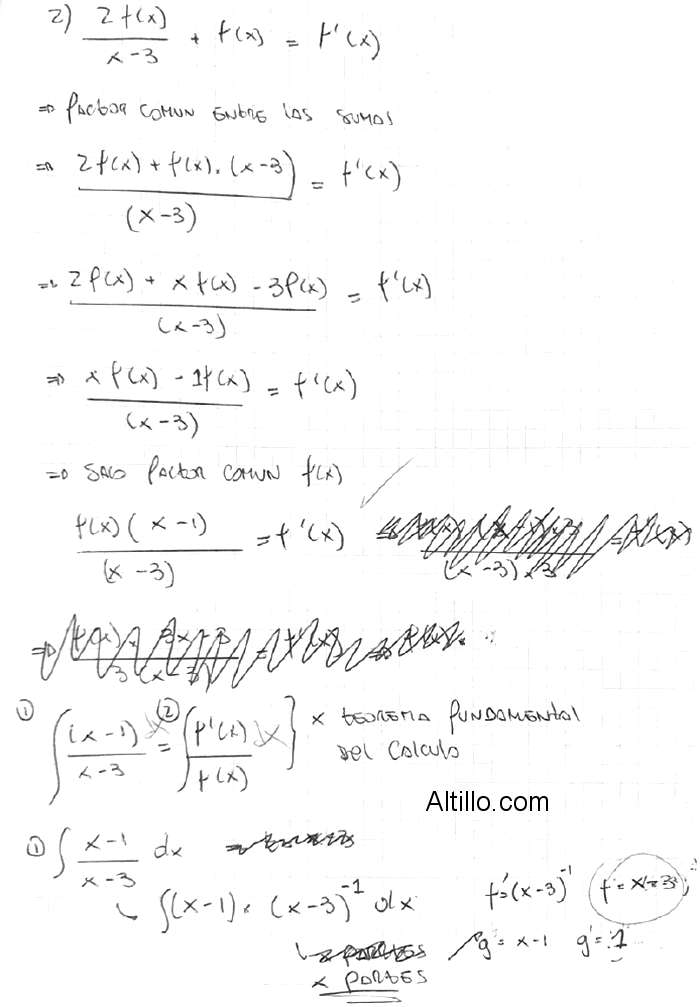 2) 2f(x)/(x-3) + f(x) = f'(x)
⇒ FACTOR COMUN ENTRE LAS SUMAS
⇒ (2f(x) + f(x). (x-3))/(x-3) = f'(x)
⇒ (2f(x) + x f(x) - 3f(x))/(x-3) = f'(x)
⇒ (x f(x) - 1f(x))/(x-3) = f'(x)
⇒ SACO FACTOR COMUN f(x)
f(x)(x-1)/(x-3) = f'(x)
① ∫ (x-1)/(x-3) dx = ② ∫ f'(x)/f(x) dx } x TEOREMA FUNDAMENTAL
DEL CALCULO
Altillo.com
① ∫ (x-1)/(x-3) dx
↳ ∫(x-1). (x-3)^-1 dx f'=(x-3)^-1
g = x-1 g'= 1
x PARTES